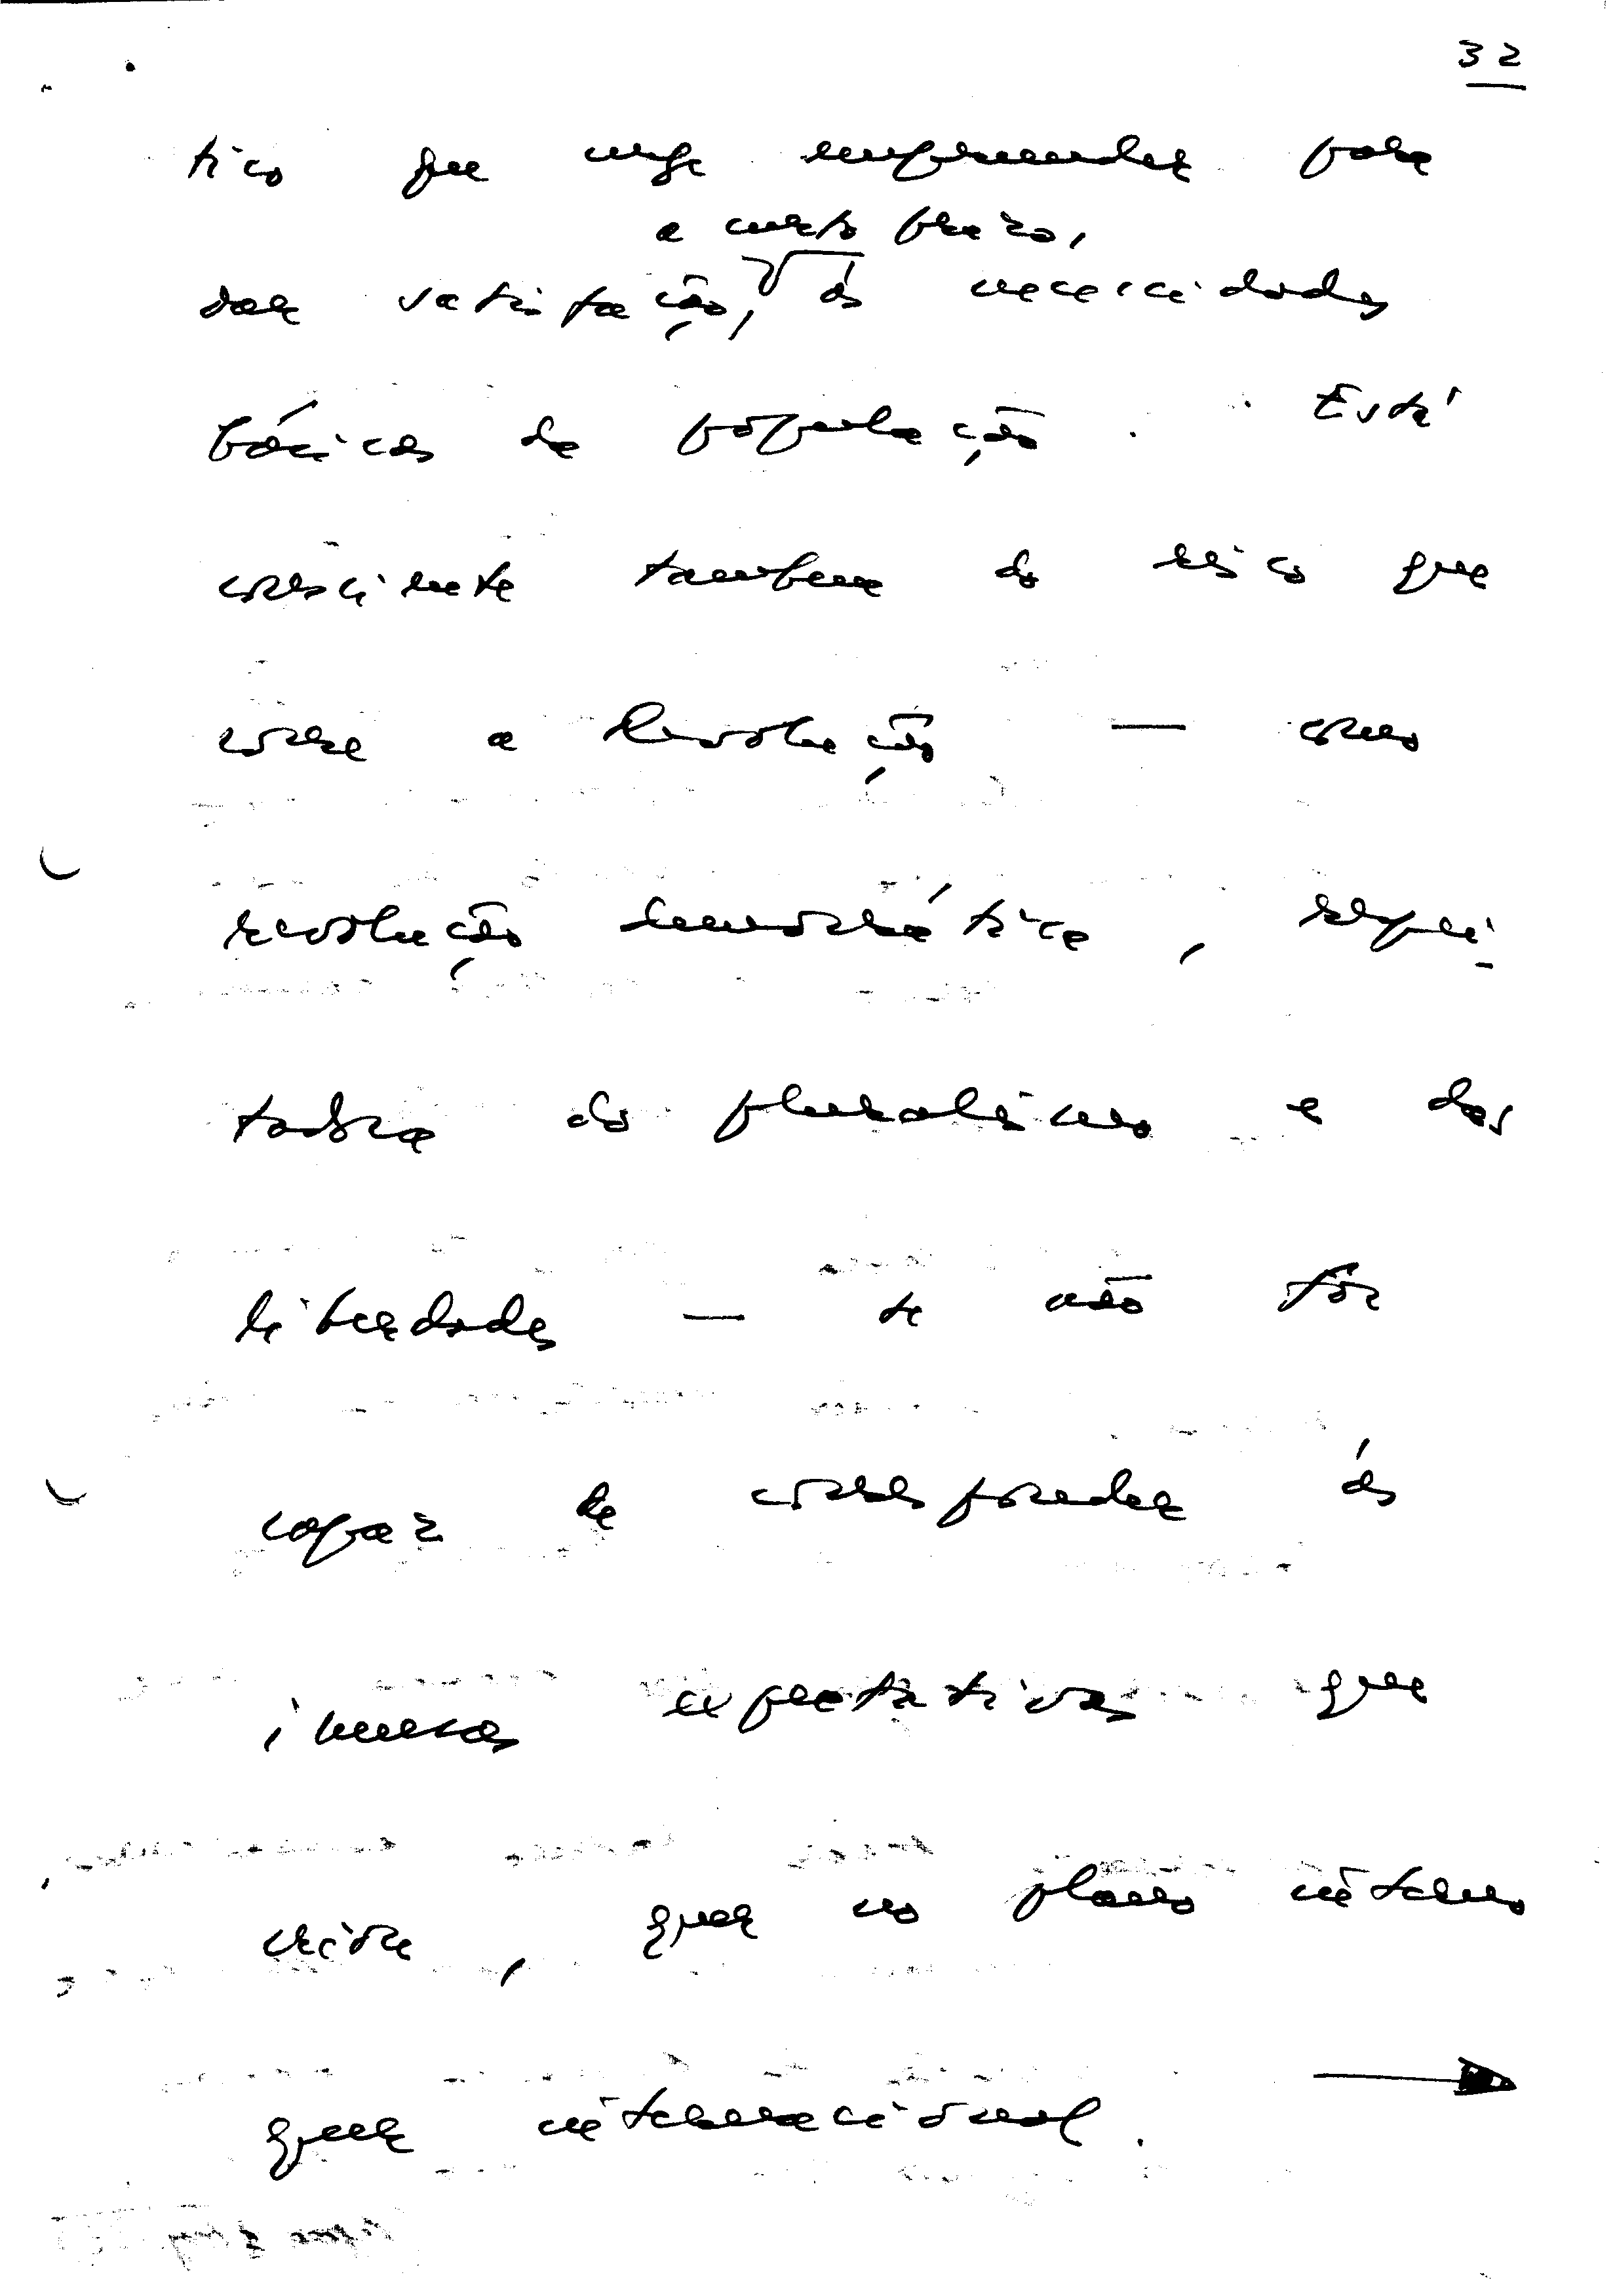 32
tico que urge empreender para
a curto prazo,
dar satisfação, às necessidades
básicas da população. Está
consciente também do risco que
corre a Revolução — como
revolução democrática, respei-
tadora do pluralismo e das
liberdades — se não for
capaz de corresponder às
imensas expectativas que
criou, quer no plano interno
quer internacional.